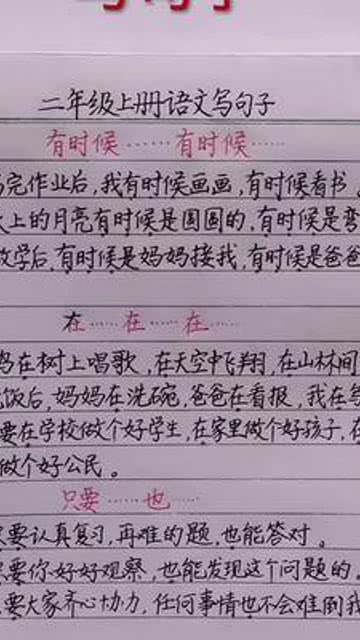 二年级上册语文写句子
有时候……有时候……
完作业后，我有时候画画，有时候看书
上的月亮有时候是圆圆的，有时候是弯
学后，有时候是妈妈接我，有时候是爸爸
在……在……在……
鸟在树上唱歌，在天空中飞翔，在山林间
饭后，妈妈在洗碗，爸爸在看报，我在
要在学校做个好学生，在家里做个好孩子，在
做个好公民。
只要……也……
要认真复习，再难的题，也能答对。
要你好好观察，也能发现这个问题的，
要大家齐心协力，任何事情也不会难倒我